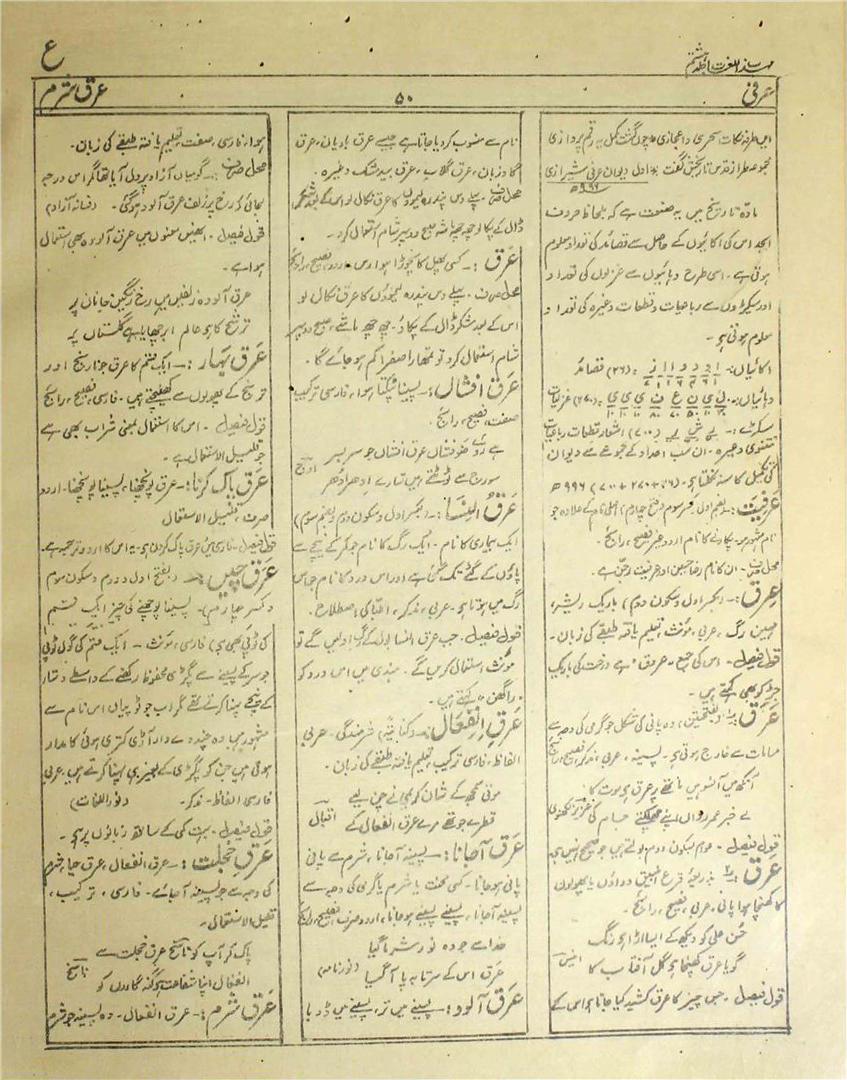 مہذب اللغت جلد ہشتم
ع
عرفی
۵۰
عرق شرم
این طرفہ نکات سحری و اعجازی ٭ چوں گشت مکمل بہ رقم پردازی
مجموعہ طراز قدس تاریخش گفت ٭ اول دیوان عرفی شیرازی
۹۹۶ھ
مادۂ تاریخ میں یہ صنعت ہے کہ بلحاظ حروف
ابجد اس کی اکائیوں کے حاصل سے قصائد کی تعداد معلوم
ہوتی ہے۔ اسی طرح دہائیوں سے غزلوں کی تعداد
اور سیکڑوں سے رباعیات و قطعات وغیرہ کی تعداد
معلوم ہوتی ہے۔
اکائیاں:۔ ا و د و ا ا ز = (۲۶) قصائد
دہائیاں:۔ ل ی ن ع ف ی ی ی ی = (۲۷۰) غزلیات
سیکڑے:۔ ر ش ر = (۷۰۰) اشعار قطعات رباعیات
مثنوی وغیرہ۔ ان سب اعداد کے مجموعے سے دیوان
کی تکمیل کا سنہ نکلتا ہے۔ (۲۶+۲۷۰+۷۰۰) ۹۹۶ھ
عرفیت:۔ (بضم اول و کسر سوم و فتح چہارم) اصلی نام کے علاوہ جو
نام مشہور ہو۔ پکارنے کا نام اردو میں فصیح، رائج۔
محل صرف۔ ان کا نام رضا حسین اور عرفیت رجن ہے۔
عِرق:۔ (بکسر اول و سکون دوم) باریک ریشہ،
مہین رگ، عربی، مؤنث، تعلیم یافتہ طبقے کی زبان۔
قول فیصل۔ اس کی جمع۔ عروق، ہے درخت کی باریک
جڑ کو بھی کہتے ہیں۔
عَرَق:۔ ۱ (بفتحتین) وہ پانی کی شکل جو گرمی کی وجہ سے
مسامات سے خارج ہوتی ہے۔ پسینہ، عربی، مذکر، فصیح، رائج
آنکھ میں آنسو ہیں ماتھے پر عرق ہے موت کا
بے خبر عمر رواں اپنے چھلکتے جام کی عزیز لکھنوی
قول فیصل۔ عوام بسکون دوم بولتے ہیں جو صحیح نہیں ہے
عَرَق:۔ ۲ بذریعہ قرع انبیق دواؤں یا پھولوں
کا کھنچا ہوا پانی۔ عربی، فصیح، رائج۔
حُسن علی کو دیکھ کے ایسا اڑا ہے رنگ
گویا عرق کھنچا ہے گل آفتاب کا انیس
قول فیصل۔ جس چیز کا عرق کشید کیا جاتا ہے اس کے
نام سے منسوب کر دیا جاتا ہے جیسے عرق بادیان، عرق
گاؤزبان، عرق گلاب، عرق بیدمشک وغیرہ۔
محل صرف۔ پہلے دس پندرہ لیموں کا عرق نکالو اس کے بعد شکر
ڈال کے پکالو چھ چھ ماشہ صبح دوپہر شام استعمال کرو۔
عَرَق:۔ کسی پھل کا نچوڑا ہوا رس۔ اردو، فصیح، رائج
محل صرف۔ پہلے دس پندرہ لیموؤں کا عرق نکالو
اس کے بعد شکر ڈال کے پکاؤ۔ چھ چھ ماشے، صبح دوپہر
شام استعمال کرو تو تمہارا صفرا کم ہو جائے گا۔
عَرَق افشاں:۔ پسینا ٹپکتا ہوا، فارسی ترکیب
صفت، فصیح، رائج۔
ہے روئے عرق افشاں جو سر بسر
سورج سے ٹوٹتے ہیں ستارے ادھر ادھر اوج
عِرْقُ النِّسا:۔ (بکسر اول و سکون دوم و بضم سوم)
ایک بیماری کا نام۔ ایک رگ کا نام جو کمر کے نیچے سے
پاؤں کے گٹے تک گئی ہے اور اس درد کا نام جو اس
رگ میں ہوتا ہے۔ عربی، مذکر، اطبا کی اصطلاح۔
قول فیصل۔ جب عرق النسا بول کے رگ مراد لیں گے تو
مؤنث استعمال کریں گے۔ ہندی میں اس درد کو
راگھن، کہتے ہیں۔
عَرَقِ اِنفعال:۔ (کنایۃً) شرمندگی۔ عربی
الفاظ، فارسی ترکیب، تعلیم یافتہ طبقے کی زبان۔
موتی سمجھ کے شان کریمی نے چن لیے
قطرے جو تھے مرے عرق انفعال کے اقبال
عَرَق آجانا:۔ پسینہ آجانا، شرم سے پانی
پانی ہو جانا۔ کسی محنت یا شرم یا گرمی کی وجہ سے
پسینہ آجانا، پسینے پسینے ہو جانا، اردو صرف، فصیح، رائج
خدا سے جو وہ نور شرما گیا
عرق اس کے سرتا بہ پا آگیا (نورنامہ)
عَرَق آلود:۔ پسینے میں تر، پسینے میں ڈوبا
ہوا، فارسی، صفت، تعلیم یافتہ طبقے کی زبان۔
محل صرف:۔ گو میاں آزاد پر دل آیا تھا مگر اس درجہ
لجائی کہ رخ پر زلف عرق آلود ہو گئی۔ (فسانہ آزاد)
قول فیصل۔ انھیں معنوں میں عرق آلودہ بھی استعمال
ہوا ہے۔
عرق آلودہ زلفیں ہیں رخ رنگین جاناں پر
ترشح کا ہے عالم ابر چھایا ہے گلستاں پر
عَرَق بہار:۔ ایک قسم کا عرق جو نارنج اور
ترنج کے پھولوں سے کھینچتے ہیں۔ فارسی، فصیح، رائج
قول فیصل۔ اس کا استعمال بمعنی شراب بھی ہے
جو قلیل الاستعمال ہے۔
عَرَق پاک کرنا:۔ عرق پونچھنا، پسینا پونچھنا۔ اردو
صرف، قلیل الاستعمال
قول فیصل۔ فارسی میں عرق پاک کردن ہے، یہ اس کا اردو ترجمہ ہے۔
عَرَق چیں:۔ (بفتح اول و دوم و سکون سوم
و کسر چہارم) پسینا پوچھنے کی چیز ایک قسم
کی ٹوپی بھی ہے) فارسی، مؤنث۔ ایک قسم کی گول ٹوپی
جو سر کے پسینے سے پگڑی محفوظ رکھنے کے واسطے دستار
کے نیچے پہنا کرتے تھے مگر اب جو ٹوپیاں اس نام سے
مشہور ہیں وہ چندوے دار آڑی کتری ہوئی کامدار
ہوتی ہیں جن کو پگڑی کے بغیر بھی پہنا کرتے ہیں۔ عربی
فارسی الفاظ۔ مذکر۔ (نور اللغات)
قول فیصل۔ بہت کمی کے ساتھ زبانوں پر ہے۔
عَرَقِ خجلت:۔ عرق انفعال، عرق حیا، شرم
کی وجہ سے جو پسینہ آجائے۔ فارسی، ترکیب،
قلیل الاستعمال۔
پاک کر آپ کو ناسخ عرق خجلت سے
انفعال اپنا شفاعت ہے گنہگاروں کو ناسخ
عَرَقِ شرم:۔ عرق انفعال۔ وہ پسینہ جو شرم